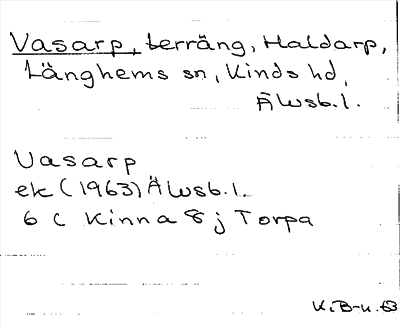 Vasarp, terräng, Haldarp,
Länghems sn, Kinds hd,
Älvsb. l.
Vasarp
ek (1963) Älvsb. l.
6 C Kinna 8 j Torpa
K.B-n. 63